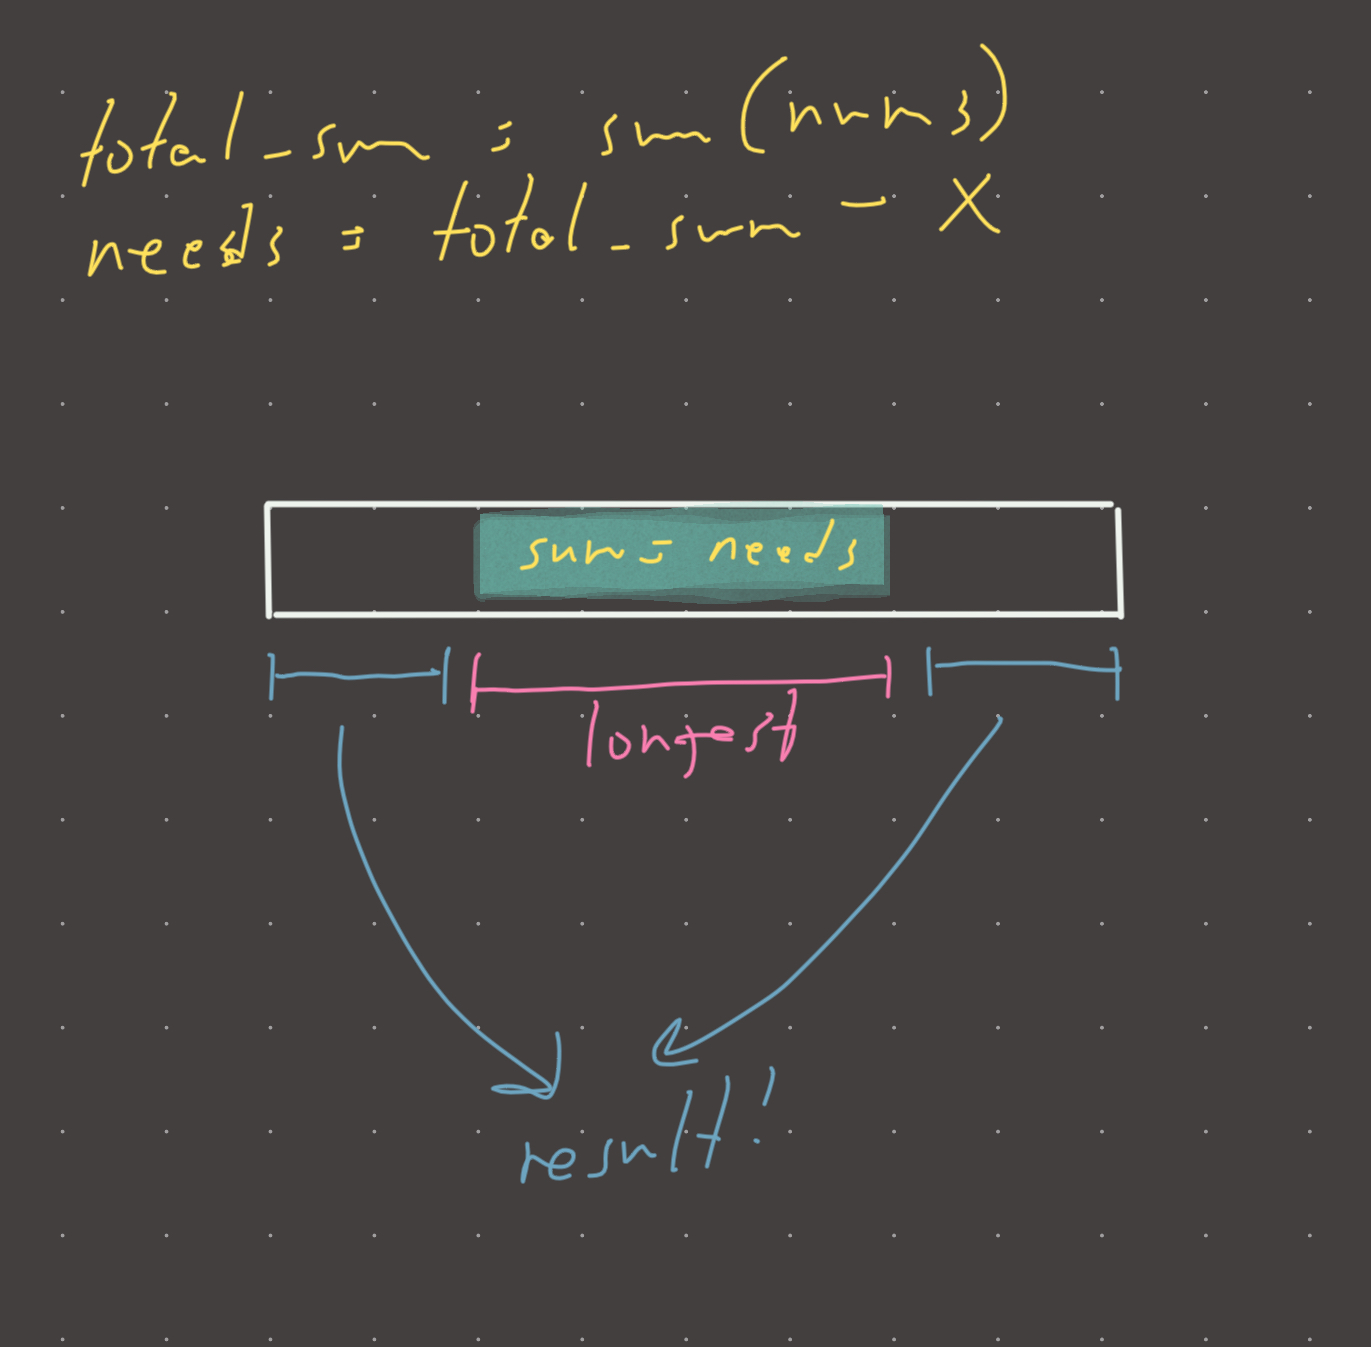 total_sum = sum(nums)
needs = total_sum - X
sum = needs
longest
result!